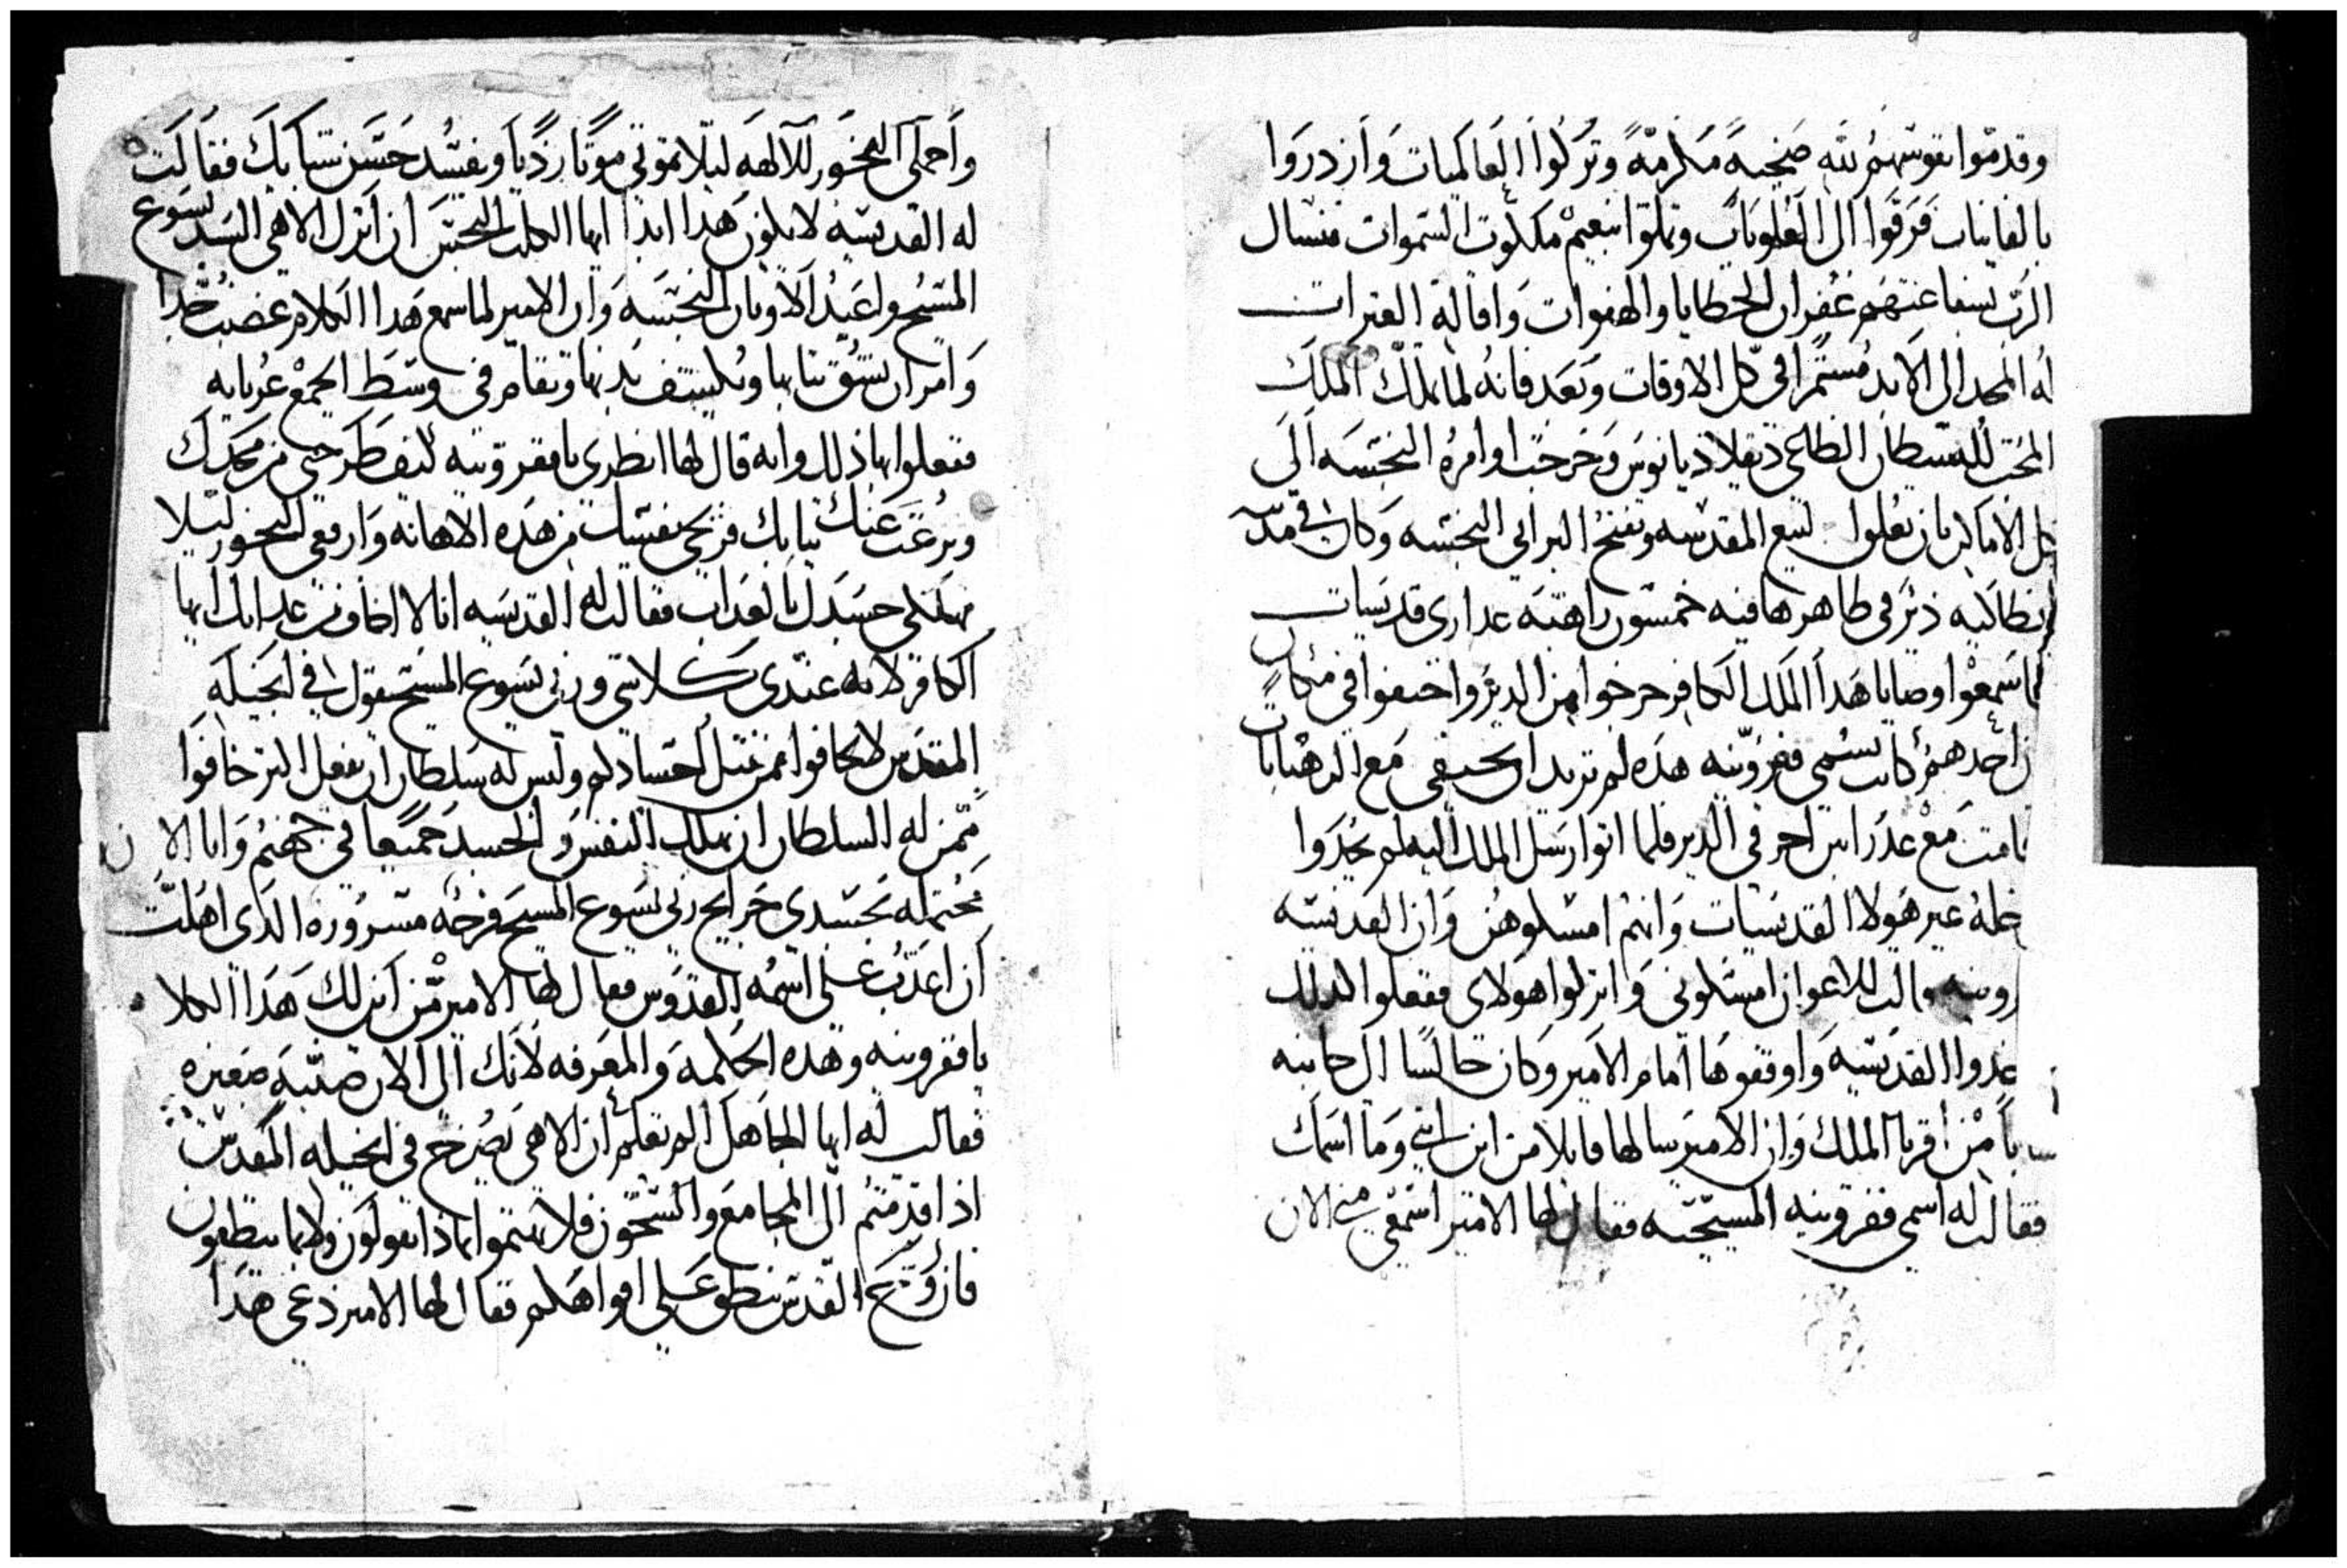 وقدموا نفوسهم لله ضحيه مكرمة وتركوا العالميات وازدروا
بالفانيات فرقوا الى العلويات وتملوا بنعيم ملكوت السموات فنسال
الرب بشفاعتهم غفران الخطايا والهفوات واقالة العترات
له المجد الى الابد مستمرا في كل الاوقات وبعد فانه لما ملك الملك
المحب للشيطان الطالح ديقلاديانوس وخرجت اوامره النجسه الى
كل الاماكن بان يغلوا البيع المقدسه وتفتح البرابي النجسه وكان في مدينه
انطاكيه دير في ظاهرها فيه خمسون راهبه عدارى قديسات
لما سمعوا وصايا هدا الملك الكافر خرجوا من الدير واختفوا في مكان
احدهم كانت تسمى ففرونيه هده لم تريد ان تختفي مع الرهبانات
قامت مع عدراتين اخر في الدير فلما اتوا رسل الملك اليه لم يجدوا
داخله غير هولا القديسات وانهم امسكوهن وان القديسه
فرونيه قالت للاعوان امسكوني واتركوا هولاى ففعلوا كدلك
اخدوا القديسه واوقفوها امام الامير وكان جالسا الى جانبه
من اقربا الملك وان الامير سالها قايلا من اين انتي وما اسمك
فقالت له اسمي ففرونيه المسيحيه فقال لها الامير اسمعي مني الان
واحملي البخور للالهه ليلا تموتي موتا رديا ويفسد حسن شبابك فقالت
له القديسه لا يكون هدا ابدا ايها الكلب النجس ان اترك الاهي السيد يسوع
المسيح واعبد الاوتان النجسه وان الامير لما سمع هدا الكلام غضب جدا
وامر ان تشق تيابها ويكشف بدنها وتقام في وسط الجمع عريانه
ففعلوا بها ذلك وانه قال لها انظري يا ففرونيه كيف طرحتي من مجدك
ونزعت عنك تيابك فريحي نفسك من هده الاهانه وارفعي البخور ليلا
نهلكي جسدك بالعداب فقالت له القديسه انا لا اخاف من عدابك ايها
الكافر لانه عندى كلاشى وربي يسوع المسيح يقول في انجيله
المقدس لا تخافوا ممن يقتل اجسادكم وليس له سلطان ان يفعل اكتر خافوا
ممن له السلطان ان يهلك النفس والجسد جميعا في جهنم وانا الان
محتمله بجسدى جرايح ربي يسوع المسيح فرحه مسروره الدى اهلت
ان اعدب على اسمه القدوس فقال لها الامير من اين لك هدا الكلام
يا ففرونيه وهده الحكمه والمعرفه لانك الى الان صبيه صغيره
فقالت له ايها الجاهل الم تعلم ان الاهي يصرخ في انجيله المقدس
اذا قدمتم الى المجامع والسجون فلا تهتموا بماذا تقولون ولا بما تنطقون
فان روح القدس ينطق على افواهكم فقال لها الامير دعي هدا